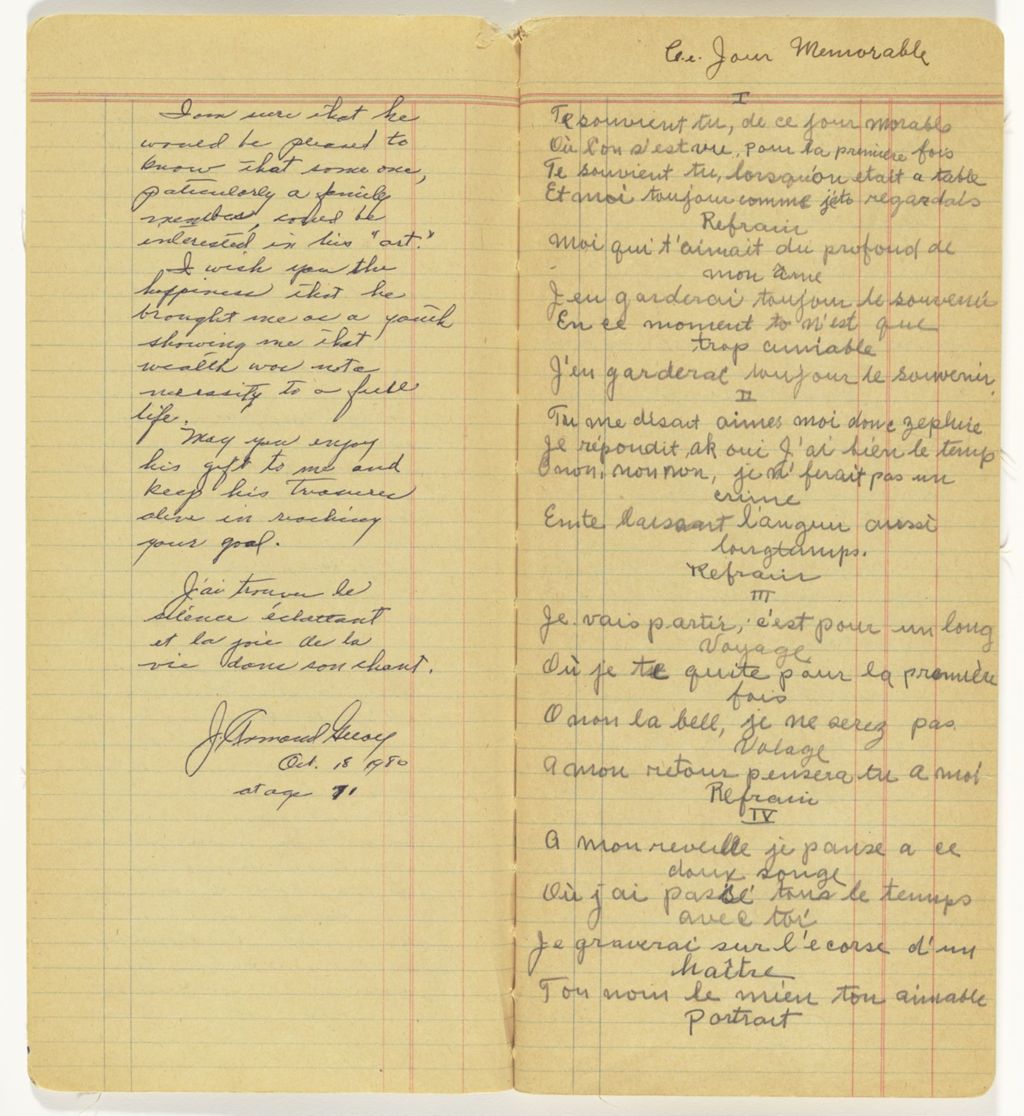 I am sure that he
would be pleased to
know that some one,
paticularly a family
member, would be
interested in his "art."
I wish you the
happiness that he
brought me as a youth
showing me that
wealth was not a
necessity to a full
life.
May you enjoy
his gift to me and
keep his Treasures
alive in reaching
your goal.
J'ai trouver le
silence éclattant
et la joie de la
vie dans son chant.
J. Armand
Oct. 18 1980
at age 71
Ce Jour Memorable
I
Te souvient tu, de ce jour morable
Où l'on s'est vue, pour la première fois
Te souvient tu, lorsqu'on etait a table
Et moi toujour comme je te regardais
Refrain
Moi qui t'aimait du profond de
mon âme
J'en garderai toujour le souvenir
En ce moment tu n'est que
trop aimable
J'en garderai toujour le souvenir
II
Tu me disait aimes moi donc zephire
Je répondit, ah oui J'ai bien le temp
O non, non non, je n' ferait pas un
crime
En te laissant l'anguir aussi
longtamps.
Refrain
III
Je vais partir, c'est pour un long
Voyage
Où je te quite pour la première
fois
O non la bell, je ne serez pas
Volage
A mon retour pensera tu a moi
Refrain
IV
A mon reveille je panse a ce
doux songe
Où j'ai passé tous le temps
avec toi
Je graverai sur l'ecorse d'un
haître
Ton nom le mien ton aimable
portrait